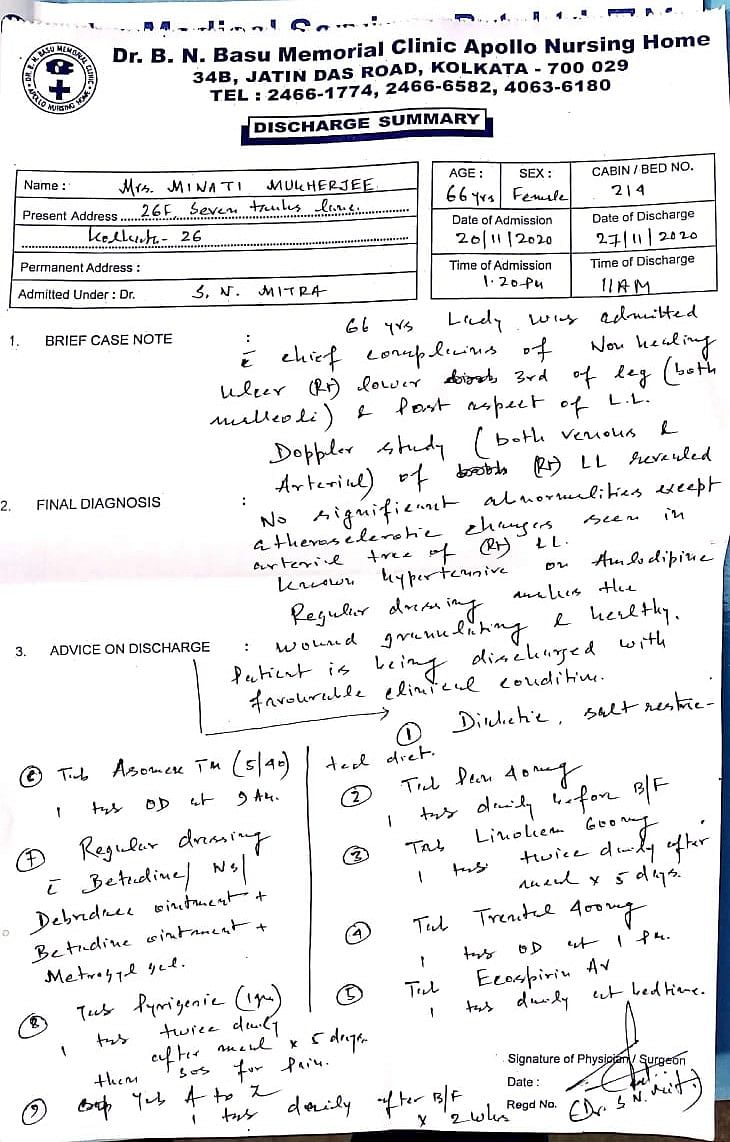 Dr. B. N. Basu Memorial Clinic Apollo Nursing Home
34B, JATIN DAS ROAD, KOLKATA - 700 029
TEL : 2466-1774, 2466-6582, 4063-6180
DISCHARGE SUMMARY
Name : Mrs. MINATI MUKHERJEE
Present Address 26F Seven tanks lane.
Kolkata - 26
Permanent Address :
Admitted Under : Dr. S. N. MITRA
AGE : 66 yrs
SEX : Female
CABIN / BED NO. 214
Date of Admission 20/11/2020
Date of Discharge 27/11/2020
Time of Admission 1.20 PM
Time of Discharge 11 AM
1. BRIEF CASE NOTE : 66 yrs Lady was admitted
c̄ chief complains of Non healing
ulcer (Rt) lower 3rd of leg (both
malleoli) & Post aspect of L.L.
Doppler study (both venous &
Arterial) of (Rt) LL revealed
2. FINAL DIAGNOSIS : No significant abnormalities except
atherosclerotic changes seen in
arterial tree of (Rt) LL.
Known hypertensive on Amlodipine
Regular dressing makes the
3. ADVICE ON DISCHARGE : wound granulating & healthy.
Patient is being discharged with
favourable clinical condition.
① Diabetic, salt restric-
ted diet.
② Tab Pan 40mg
1 tab daily before B/F
③ Tab Linoken 600mg
1 tab twice daily after
meal x 5 days.
④ Tab Trental 400mg
1 tab OD at 1 PM.
⑤ Tab Ecospirin AV
1 tab daily at bedtime.
⑥ Tab Asomex TM (5/40)
1 tab OD at 9 AM.
⑦ Regular dressing
c̄ Betadine/NS/
Debridace ointment +
Betadine ointment +
Metrogyl gel.
⑧ Tab Pyrigenic (1gm)
1 tab twice daily
after meal x 5 days
then SOS for Pain.
⑨ Tab A to Z
1 tab daily after B/F
x 2 wks
Signature of Physician / Surgeon
Date :
Regd No. (Dr. S N. Mitra)